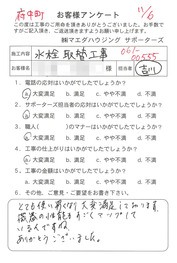 府中町
お客様アンケート
11/6
この度は工事のご用命を頂きありがとうございました。お手数で
すがご記入頂き、ご返送頂きますようお願い申し上げます。
㈱マエダハウジング サポーターズ
施工内容 水栓取替工事 061-00555
お名前 様 担当者 吉川
1．電話の対応はいかがでしたでしょうか？
大変満足 b．満足 c．やや不満 d．不満
2．サポーターズ担当者の対応はいかがでしたでしょうか？
大変満足 b．満足 c．やや不満 d．不満
3．職人( )のマナーはいかがでしたでしょうか？
大変満足 b．満足 c．やや不満 d．不満
4．工事の品質はいかがでしたでしょうか？
大変満足 b．満足 c．やや不満 d．不満
5．工事の金額はいかがでしたでしょうか？
大変満足 b．満足 c．やや不満 d．不満
6．その他、ご意見・ご要望をお書き下さい。
とても使い易くなり大変満足して居ります。
機器の性能もすごくアップして
いるんですね。
ありがとうございました。